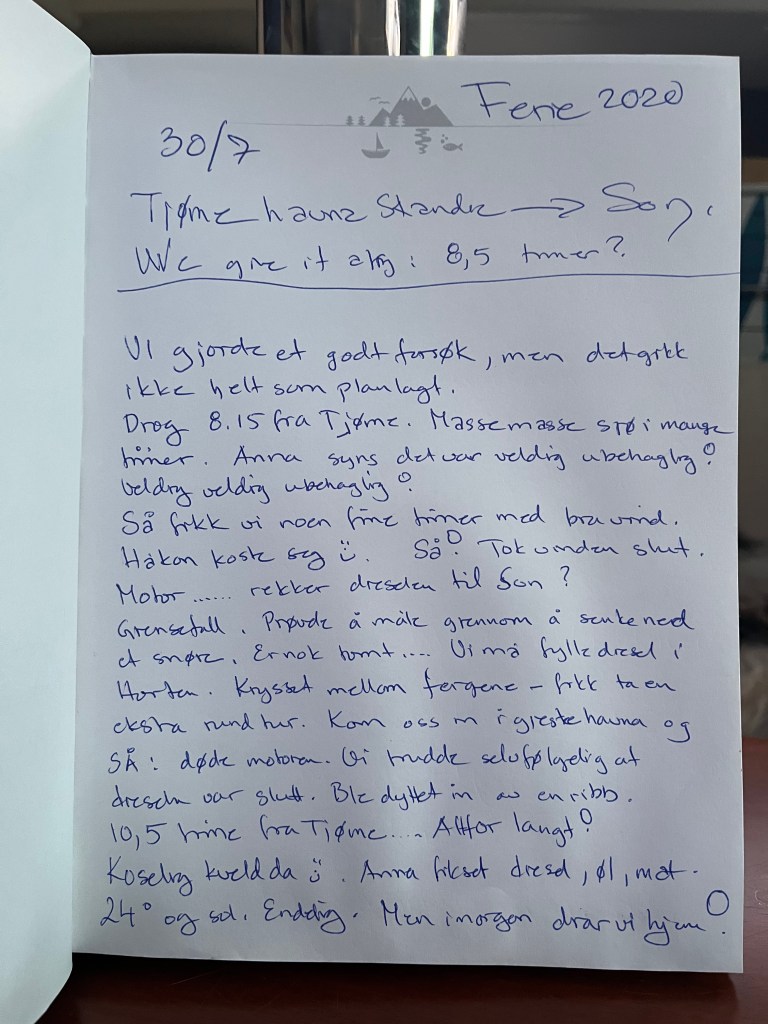 Ferie 2020
30/7
Tjøme havna Standr → Son.
We give it a try: 8,5 timer?
Vi gjorde et godt forsøk, men det gikk
ikke helt som planlagt.
Drog 8.15 fra Tjøme. Massemasse sjø i mange
timer. Anna syns det var veldig ubehaglig!
Veldig veldig ubehaglig!
Så fikk vi noen fine timer med bra vind.
Håkon koste seg ü. Så! Tok vinden slut.
Motor...... rekker dieselen til Son?
Grensefall. Prøvde å måle gjennom å senke ned
et snøre. Er nok tomt.... Vi må fylle diesel i
Horten. Krysset mellom fergene - fikk ta en
ekstra rund tur. Kom oss inn i gjestehavna og
SÅ: døde motoren. Vi trudde selvfølgelig at
dieseln var slutt. Ble dyttet in av en ribb.
10,5 time fra Tjøme.... Altfor langt!
Koselig kveld da ü. Anna fikset diesel, øl, mat.
24° og sol. Endelig. Men imorgen drar vi hjem!